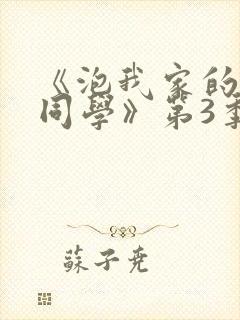 《泡我家的
同學》第3季
蘇子堯